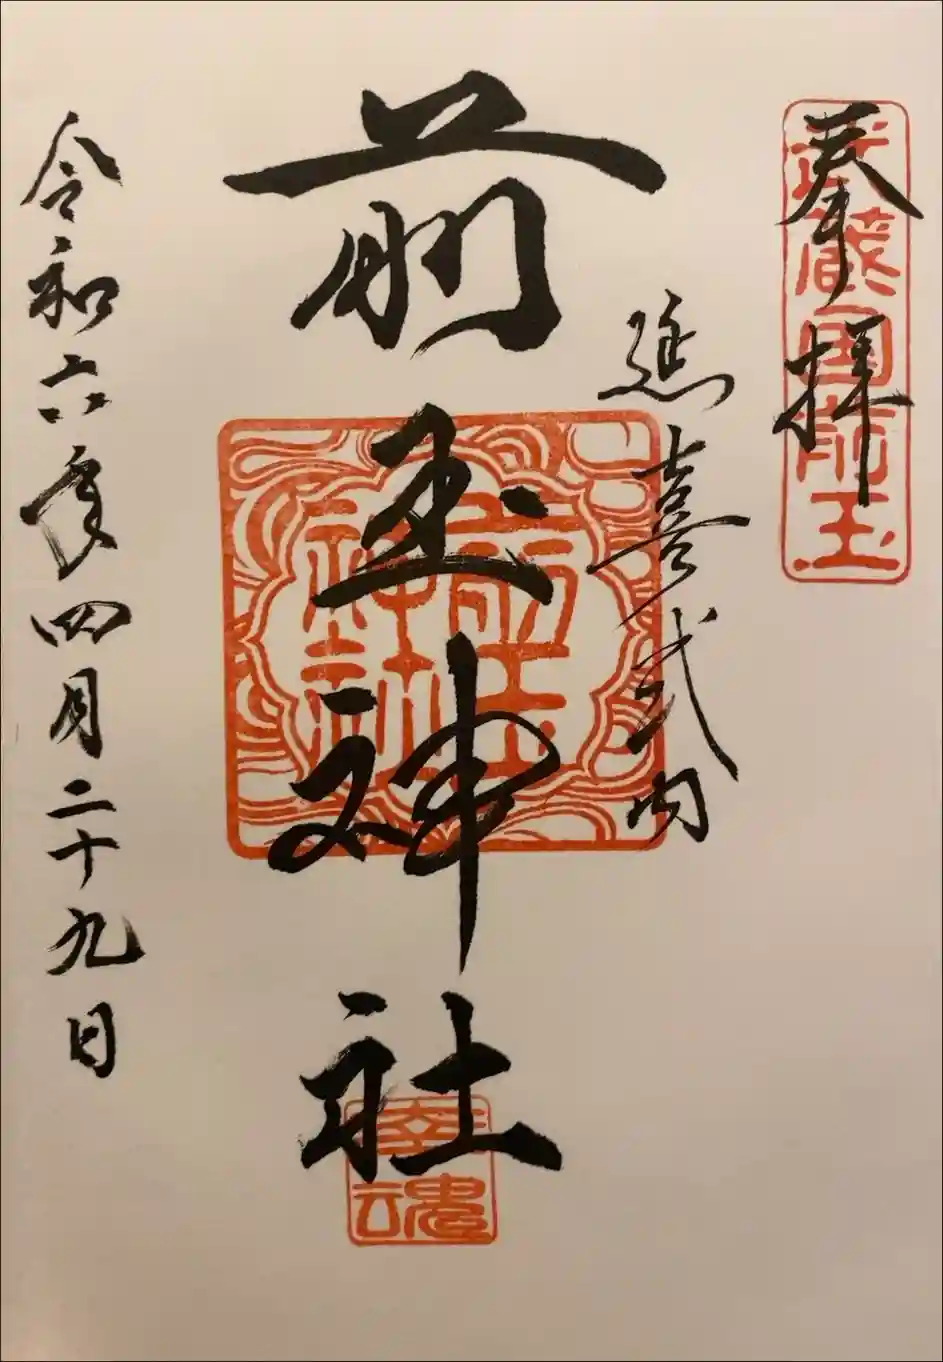 奉拝
武蔵国前玉
延喜式内
前玉神社
前玉
神社
幸魂
令和六年四月二十九日